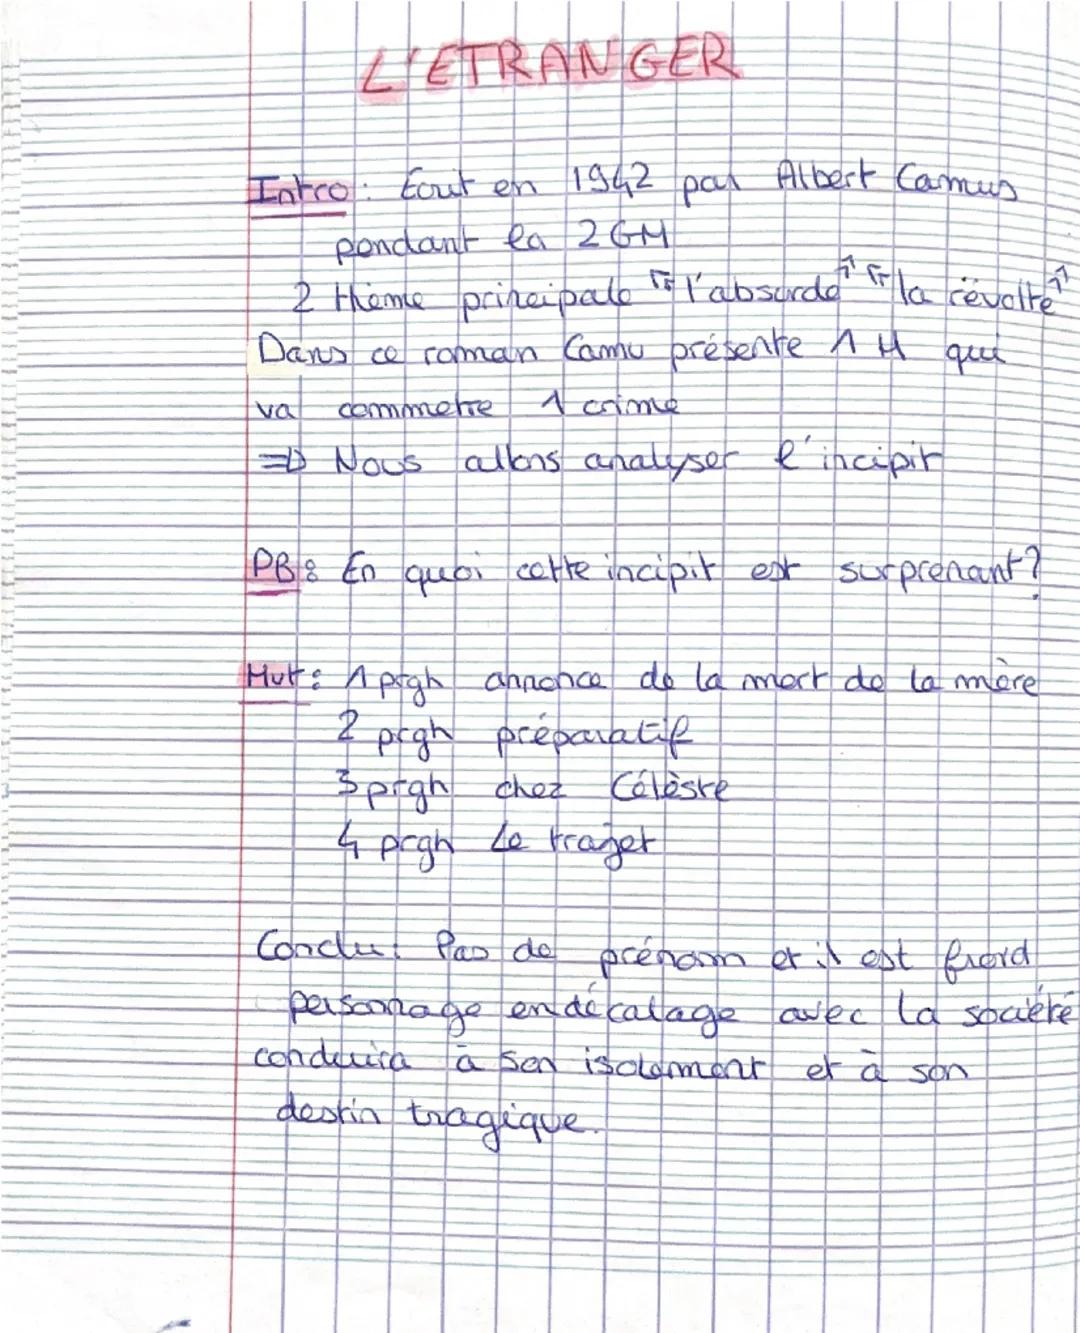 L'ETRANGER
Intro : Ecrit en 1942 par Albert Camus
pendant la 2GM
2 thème principale "l'absurde" "la révolte"
Dans ce roman Camu présente 1 H qui
va commetre 1 crime
=> Nous allons analyser l'incipit
PB : En quoi cette incipit est surprenant ?
Mvt : 1 prgh annonce de la mort de la mère
2 prgh préparatif
3 prgh chez Célèste
4 prgh Le trajet
Conclu : Pas de prénom et il est froid
personnage en décalage avec la société
conduira à son isolement et à son
destin tragique.